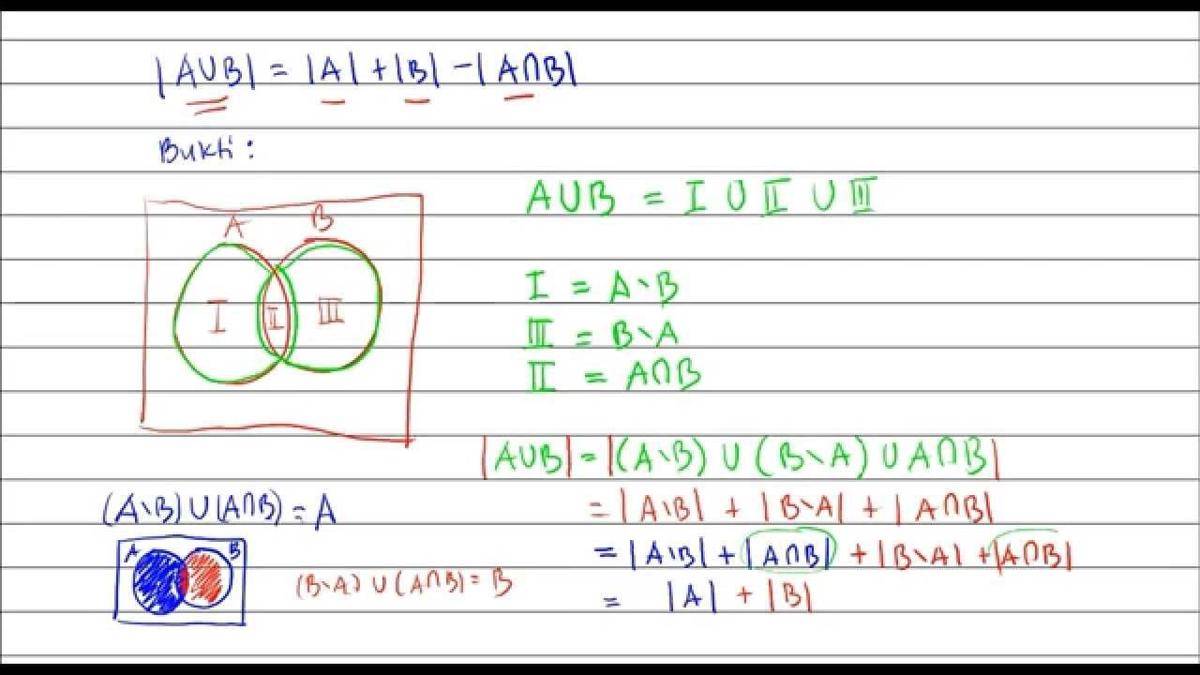 |A∪B| = |A| + |B| - |A∩B|
Bukti :
A B
I II III
A∪B = I ∪ II ∪ III
I = A\B
III = B\A
II = A∩B
|A∪B| = |(A\B) ∪ (B\A) ∪ A∩B|
= |A\B| + |B\A| + |A∩B|
= |A\B| + |A∩B| + |B\A| + |A∩B|
= |A| + |B|
(A\B) ∪ (A∩B) = A
A B
(B\A) ∪ (A∩B) = B